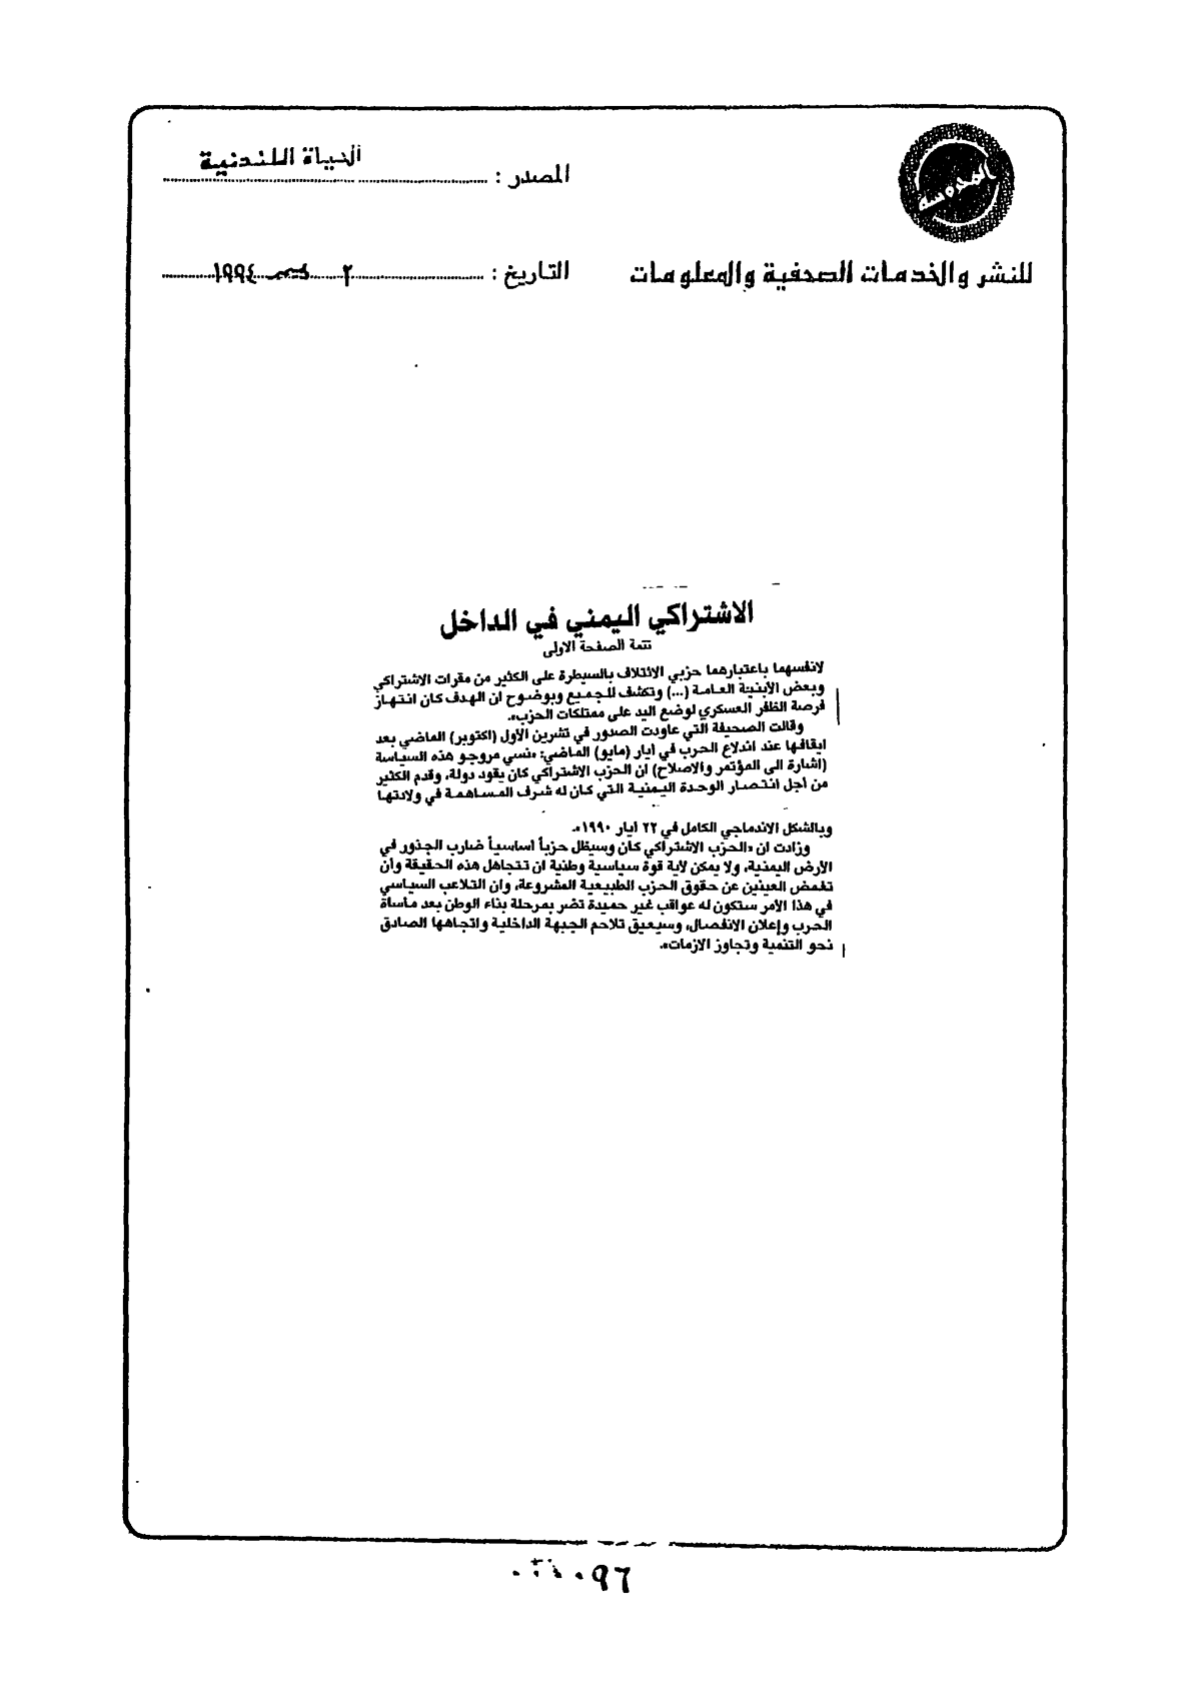 المدوسة
المصدر : الحياة اللندنية
للنشر والخدمات الصحفية والمعلومات
التاريخ : ٢ ديسمبر ١٩٩٤
الاشتراكي اليمني في الداخل
تتمة الصفحة الاولى
لانفسهما باعتبارهما حزبي الائتلاف بالسيطرة على الكثير من مقرات الاشتراكي
وبعض الأبنية العامة (...) وتكشف للجميع وبوضوح ان الهدف كان انتهاز
فرصة الظفر العسكري لوضع اليد على ممتلكات الحزب».
وقالت الصحيفة التي عاودت الصدور في تشرين الأول (اكتوبر) الماضي بعد
ايقافها عند اندلاع الحرب في ايار (مايو) الماضي: «نسي مروجو هذه السياسة
(اشارة الى المؤتمر والاصلاح) ان الحزب الاشتراكي كان يقود دولة، وقدم الكثير
من أجل انتصار الوحدة اليمنية التي كان له شرف المساهمة في ولادتها
وبالشكل الاندماجي الكامل في ٢٢ ايار ١٩٩٠».
وزادت ان «الحزب الاشتراكي كان وسيظل حزباً اساسياً ضارب الجذور في
الأرض اليمنية، ولا يمكن لأية قوة سياسية وطنية ان تتجاهل هذه الحقيقة وأن
تغمض العينين عن حقوق الحزب الطبيعية المشروعة، وان التلاعب السياسي
في هذا الأمر ستكون له عواقب غير حميدة تضر بمرحلة بناء الوطن بعد مأساة
الحرب وإعلان الانفصال، وسيعيق تلاحم الجبهة الداخلية واتجاهها الصادق
نحو التنمية وتجاوز الازمات».